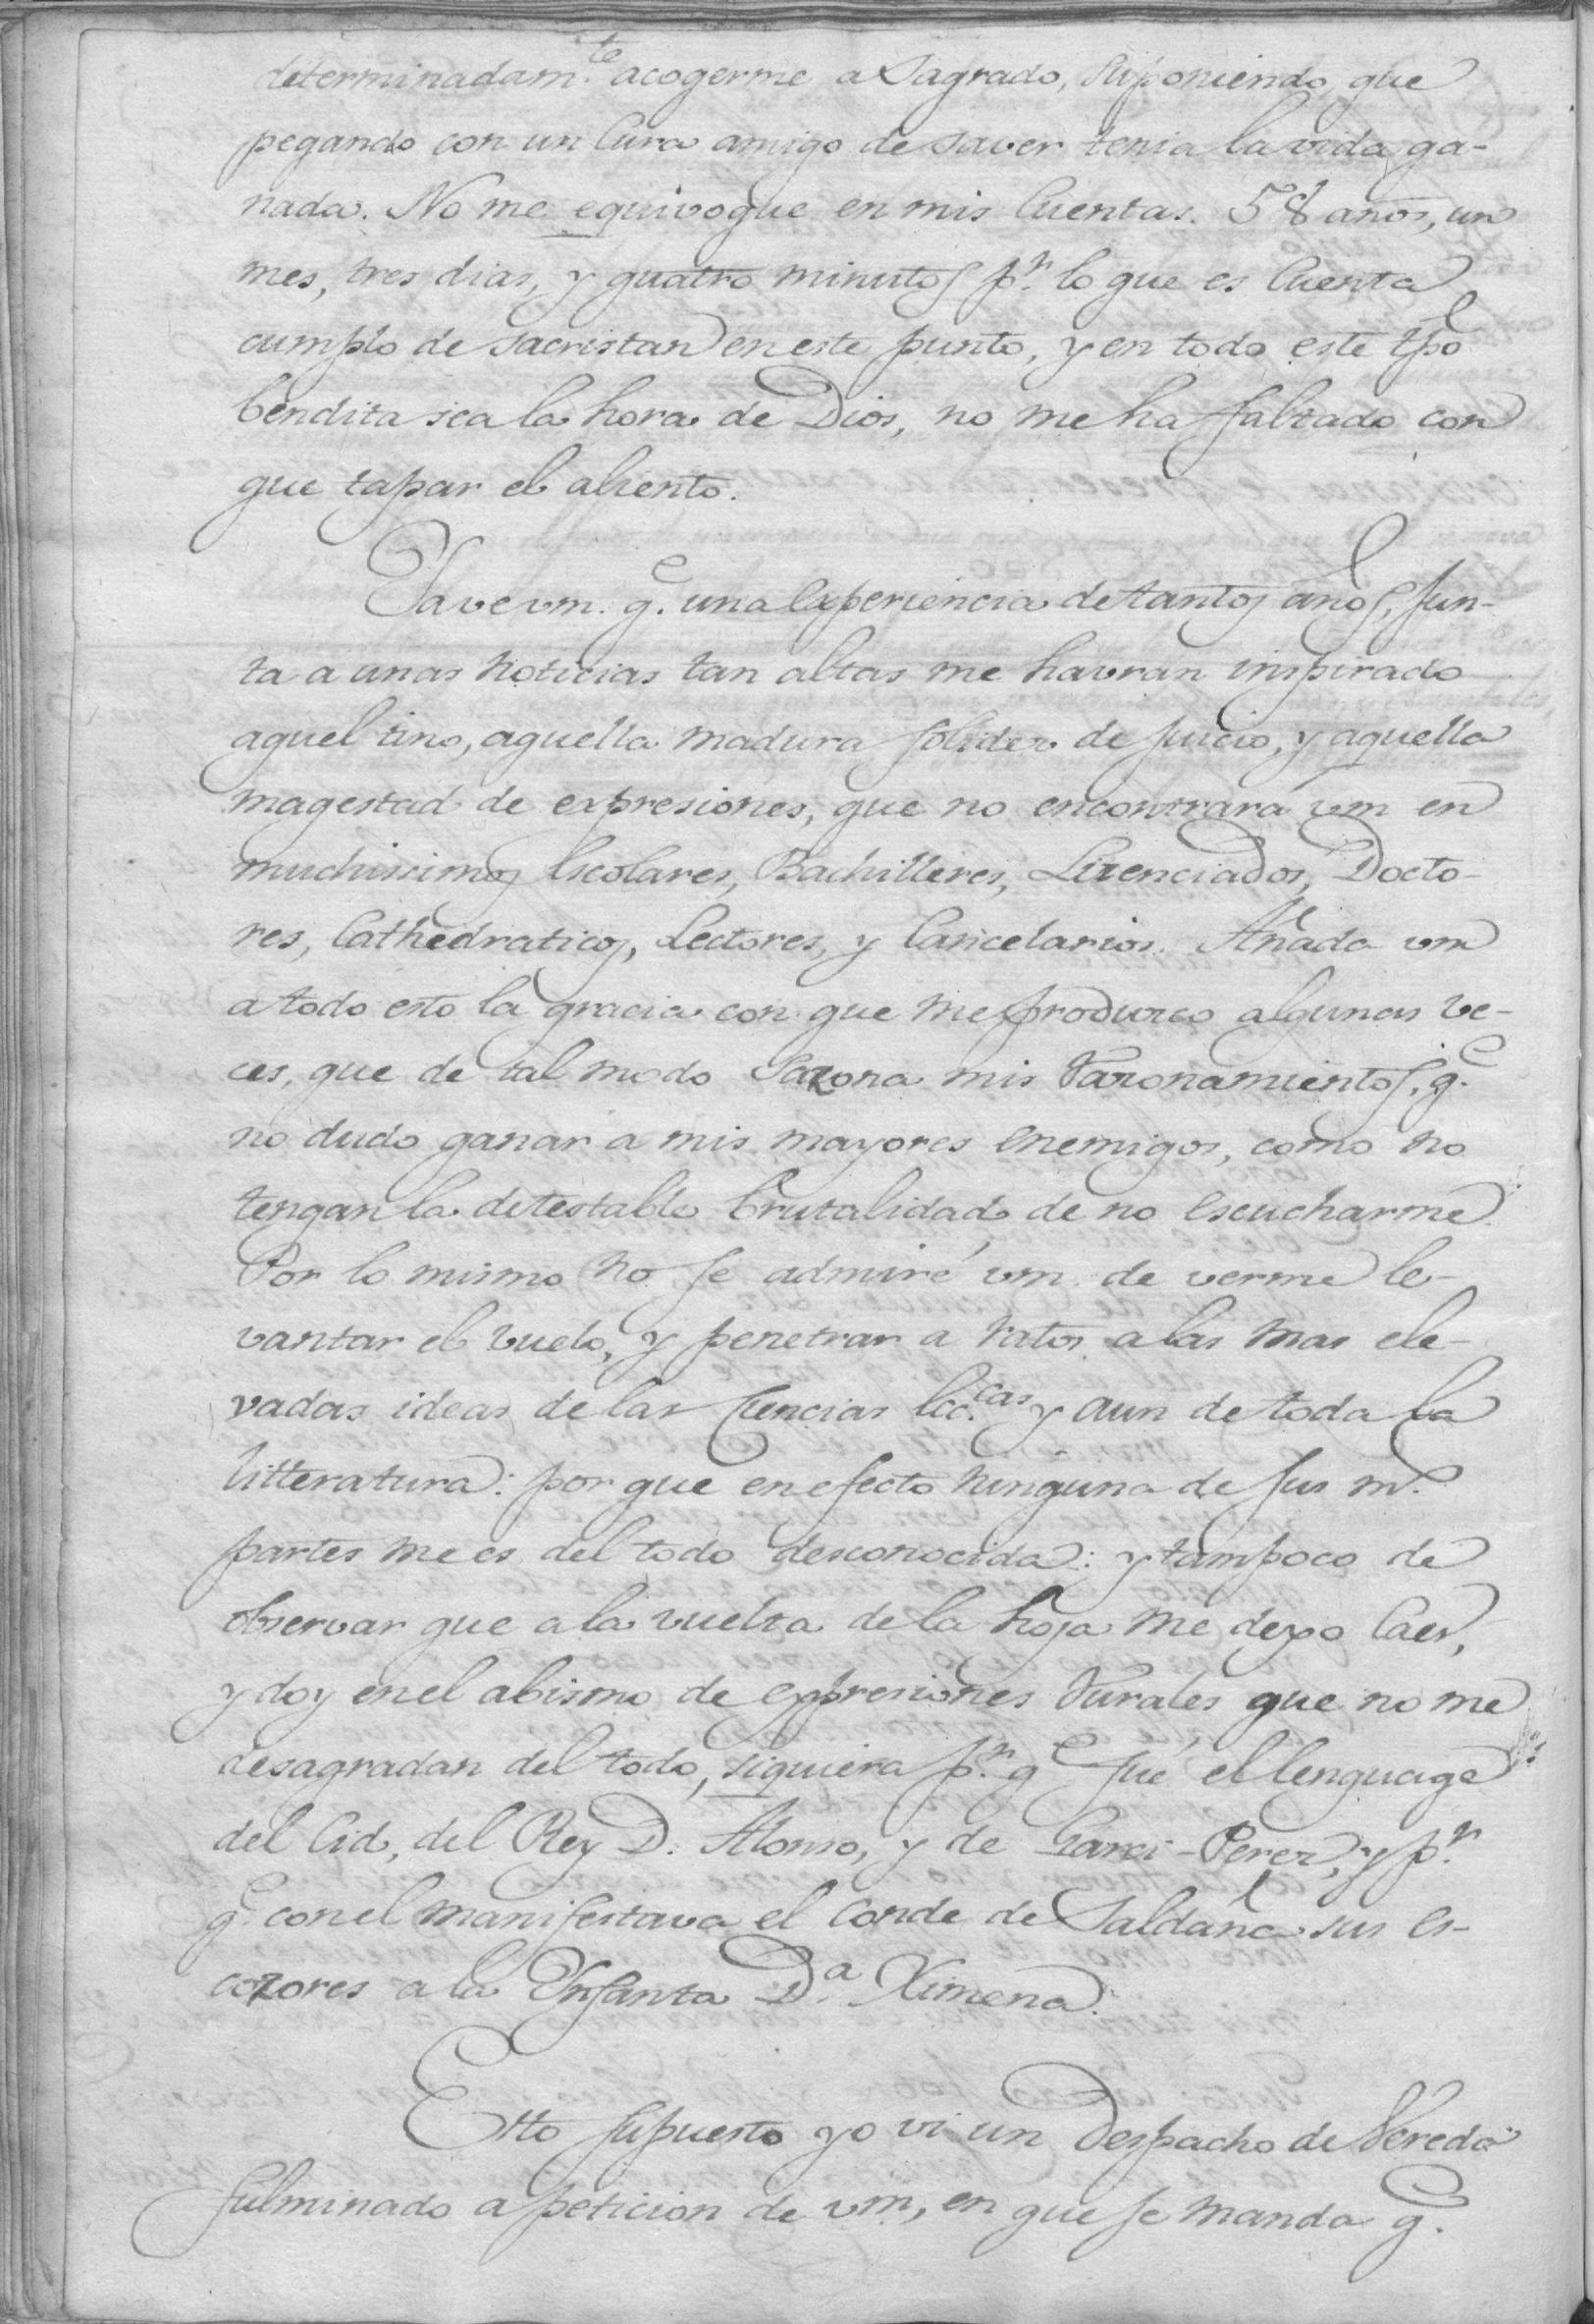 determinadam.te acogerme a Sagrado, suponiendo que
pegando con un Cura amigo de saver tenia la vida ga-
nada. No me equivoque en mis Cuentas. 58 años, un
mes, tres dias, y quatro minutos p.r lo que es Cuenta
cumplo de sacristan en este punto, y en todo este tpõ
bendita sea la hora de Dios, no me ha faltado con
que tapar el aliento.
Save vm. q.e una experiencia de tantos años, jun-
ta a unas noticias tan altas me havran inspirado
aquel tino, aquella madura solidez de juicio, y aquella
magestad de expresiones, que no encontrará vm en
muchissimos Escolares, Bachilleres, Lizenciados, Docto-
res, Cathedraticos, Lectores, y Cancelarios. Añada vm
a todo esto la gracia con que me produzco algunas ve-
ces, que de tal modo sazona mis razonamientos, q.e
no dudo ganar a mis mayores enemigos, como no
tengan la detestable brutalidad de no escucharme.
Por lo mismo no se admire vm. de verme le-
vantar el vuelo, y penetrar a ratos a las mas ele-
vadas ideas de las Ciencias Ecc.cas y aun de toda la
litteratura: por que en efecto ninguna de sus m.s
partes me es del todo desconocida: y tampoco de
observar que a la vuelta de la hoja me dexo Caer,
y doy en el abismo de expresiones rurales que no me
desagradan del todo, siquiera p.r q.e fué el lenguage
del Cid, del Rey D. Alonso, y de Garci-Perez, y p.r
q.e con el manifestava el Conde de Saldaña sus es-
cozores a la Ynfanta D.a Ximena.
Esto supuesto yo vi un Despacho de Vereda
fulminado a peticion de vm, en que se manda q.e